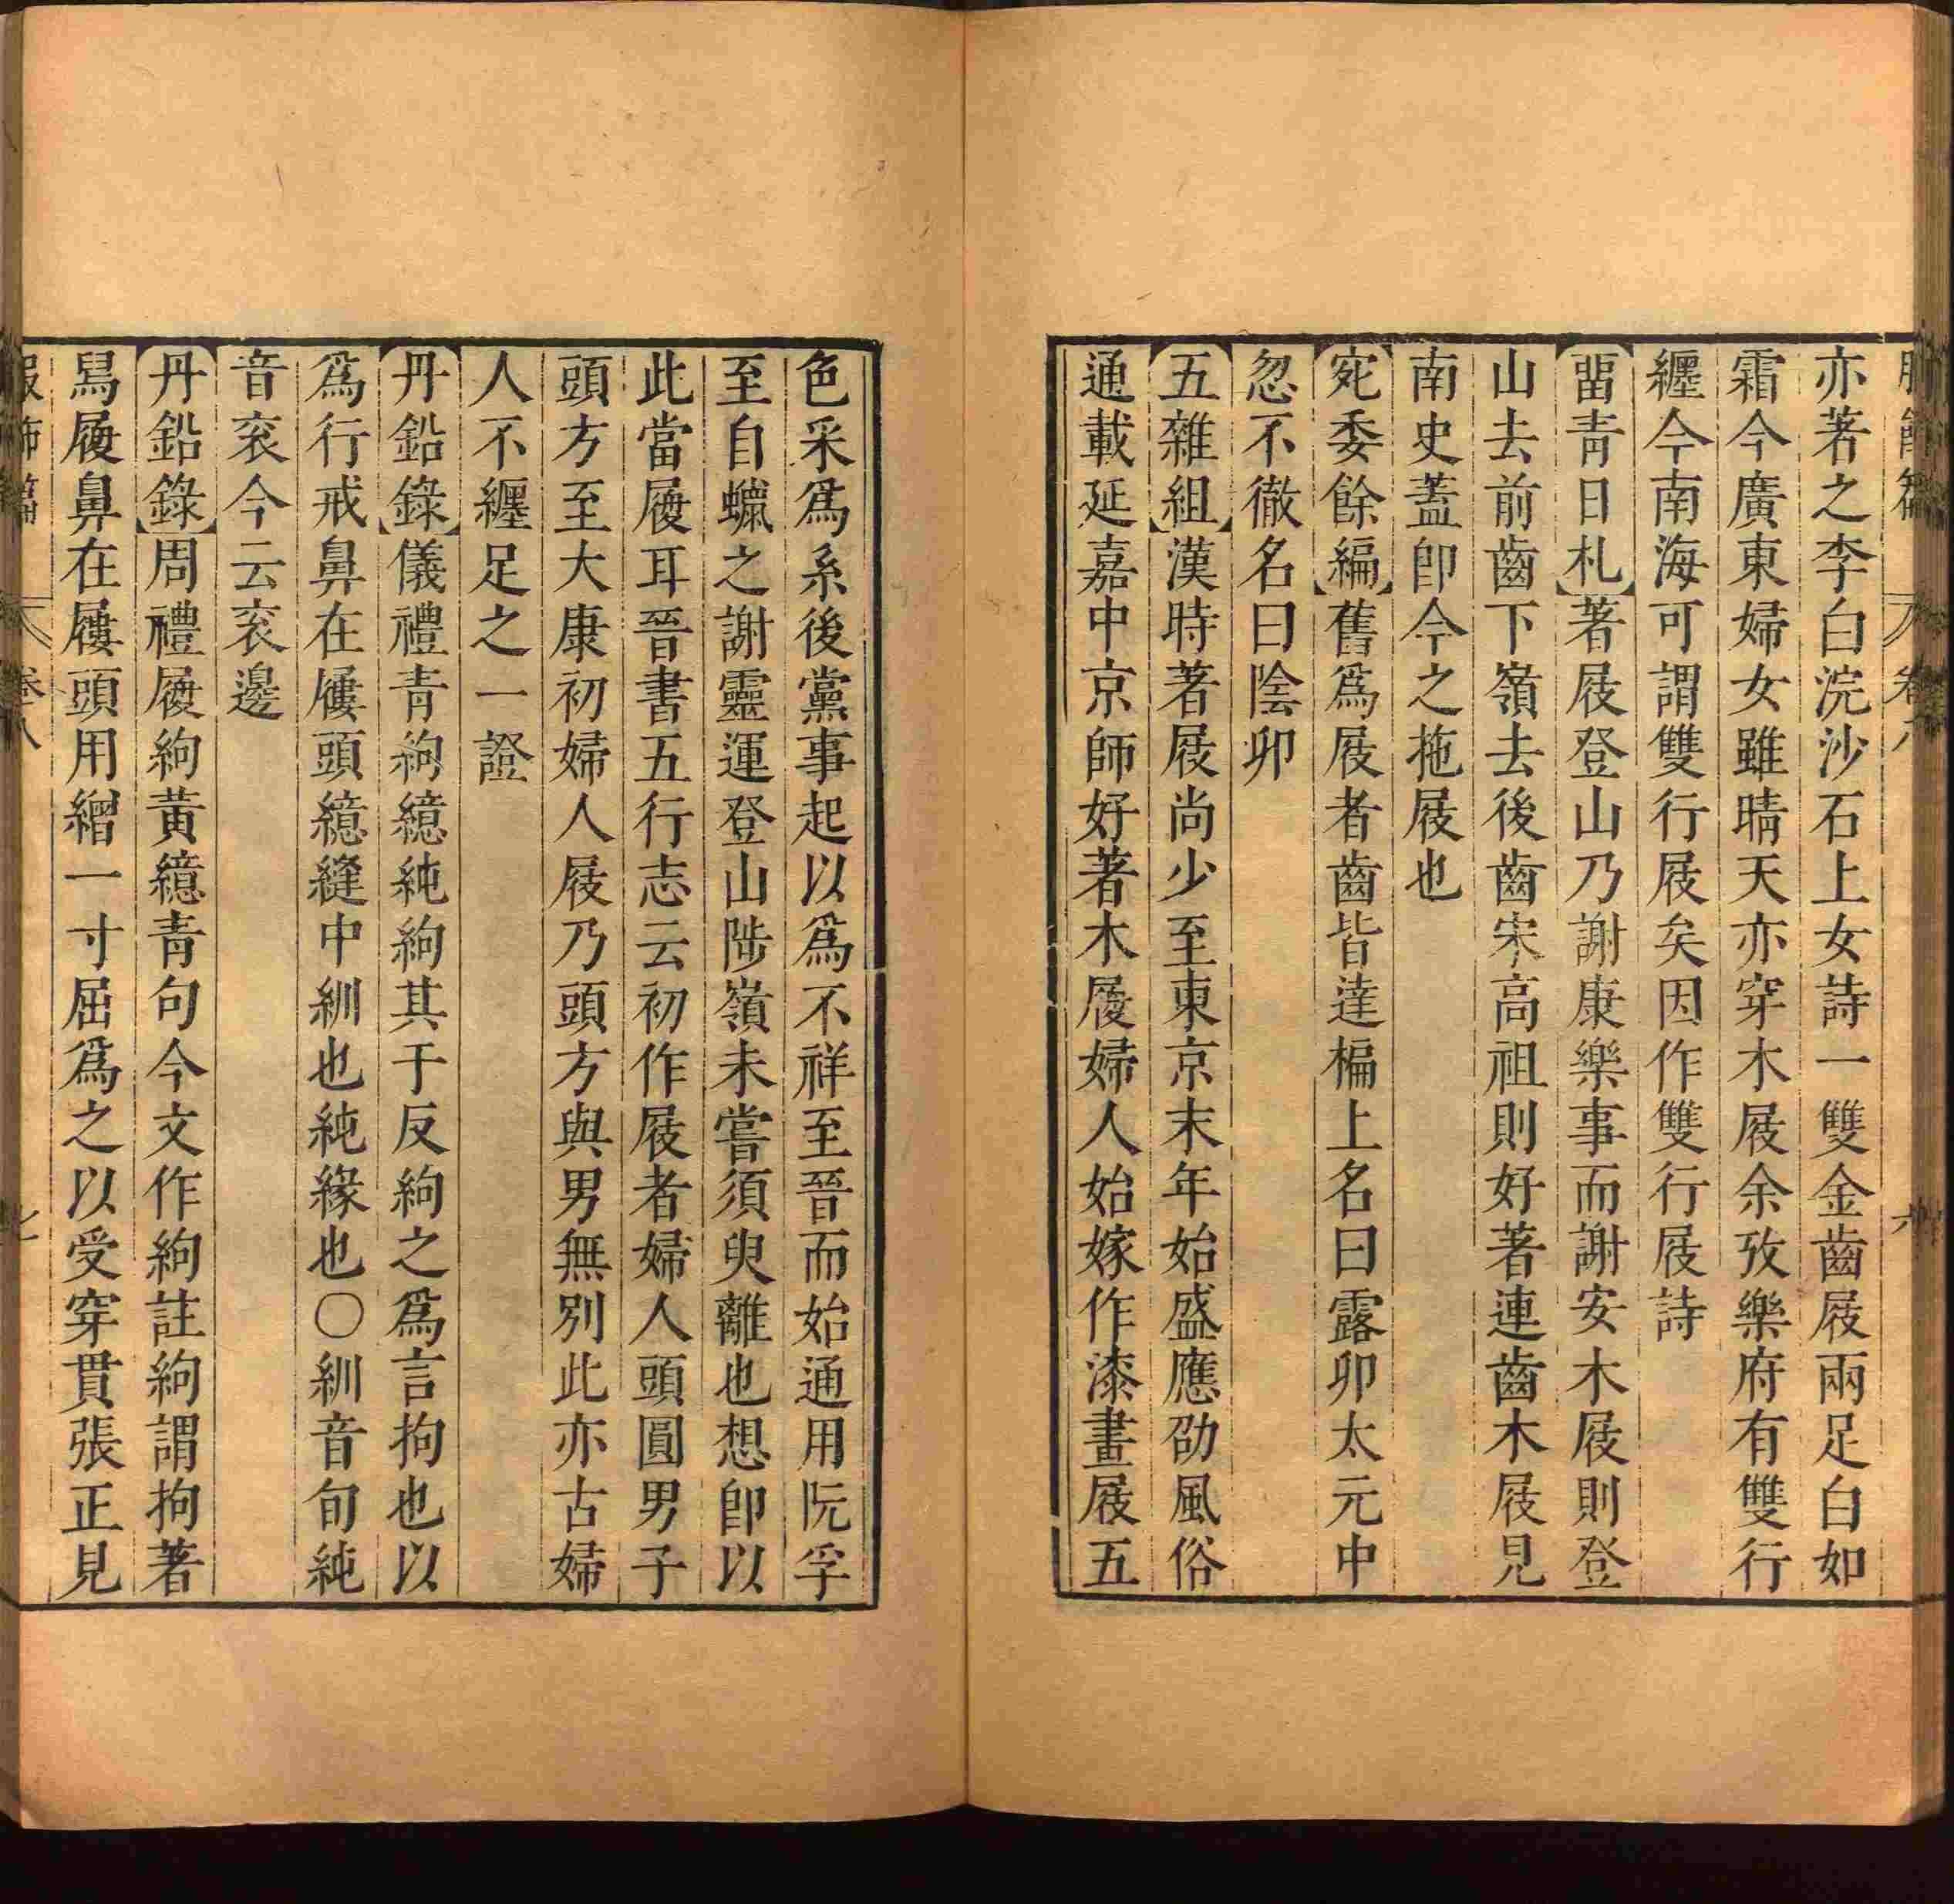 亦著之李白浣沙石上女詩一雙金齒屐兩足白如
霜今廣東婦女雖晴天亦穿木屐余攷樂府有雙行
纏今南海可謂雙行屐矣因作雙行屐詩
【畱青日札】著屐登山乃謝康樂事而謝安木屐則登
山去前齒下嶺去後齒宋高祖則好著連齒木屐見
南史蓋卽今之拖屐也
【宛委餘編】舊爲屐者齒皆達楄上名曰露卯太元中
忽不徹名曰陰卯
【五雜組】漢時著屐尚少至東京末年始盛應劭風俗
通載延嘉中京師好著木履婦人始嫁作漆畫屐五
色采爲系後黨事起以爲不祥至晉而始通用阮孚
至自蠟之謝靈運登山陟嶺未嘗須臾離也想卽以
此當履耳晉書五行志云初作屐者婦人頭圓男子
頭方至大康初婦人屐乃頭方與男無別此亦古婦
人不纏足之一證
【丹鉛錄】儀禮青絇繶純絇其于反絇之爲言拘也以
爲行戒鼻在屨頭繶縫中紃也純緣也〇紃音旬純
音衮今云衮邊
【丹鉛錄】周禮履絇黃繶青句今文作絇註絇謂拘著
舄履鼻在屨頭用繒一寸屈爲之以受穿貫張正見
服飾篇 卷八 七